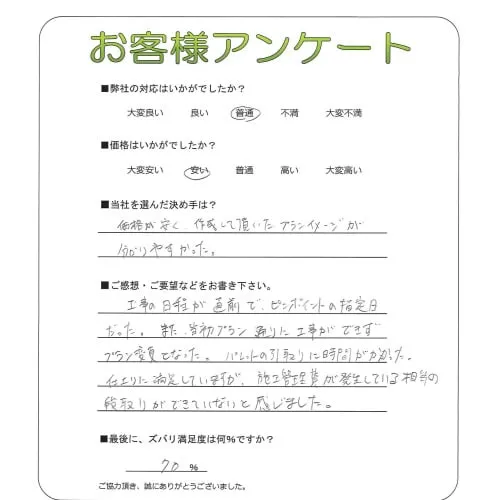 お客様アンケート
■弊社の対応はいかがでしたか?
大変良い 良い 普通 不満 大変不満
■価格はいかがでしたか?
大変安い 安い 普通 高い 大変高い
■当社を選んだ決め手は?
価格が安く、作成して頂いたプランイメージが
分かりやすかった。
■ご感想・ご要望などをお書き下さい。
工事の日程が直前で、ピンポイントの指定日
だった。また、当初プラン通りに工事ができず
プラン変更となった。パレットの引取りに時間がかかった。
仕上りに満足していますが、施工管理費が発生している相当の
段取りができていないと感じました。
■最後に、ズバリ満足度は何%ですか?
70 %
ご協力頂き、誠にありがとうございました。